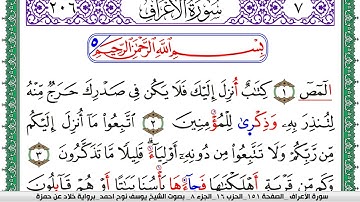 ٢٠٦ سُورَةُ الأَعْرَافِ ٧
بِسْمِ اللَّهِ الرَّحْمَٰنِ الرَّحِيمِ
الٓمٓصٓ ١ كِتَٰبٌ أُنزِلَ إِلَيْكَ فَلَا يَكُن فِى صَدْرِكَ حَرَجٌ مِّنْهُ
لِتُنذِرَ بِهِۦ وَذِكْرَىٰ لِلْمُؤْمِنِينَ ٢ ٱتَّبِعُوا۟ مَآ أُنزِلَ إِلَيْكُم
مِّن رَّبِّكُمْ وَلَا تَتَّبِعُوا۟ مِن دُونِهِۦٓ أَوْلِيَآءَ قَلِيلًا مَّا تَذَكَّرُونَ ٣
وَكَم مِّن قَرْيَةٍ أَهْلَكْنَٰهَا فَجَآءَهَا بَأْسُنَا بَيَٰتًا أَوْ هُمْ قَآئِلُونَ
سورة الاعراف الصفحة ١٥١ الحزب ١٦ الجزء ٨ بصوت الشيخ يوسف نوح احمد برواية خلاد عن حمزة